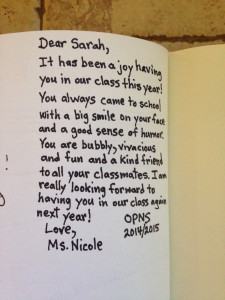 Dear Sarah,
It has been a joy having
you in our class this year!
You always came to school
with a big smile on your face
and a good sense of humor.
You are bubbly, vivacious
and fun and a kind friend
to all your classmates. I am
really looking forward to
having you in our class again
next year! OPNS
Love, 2014/2015
Ms. Nicole
!